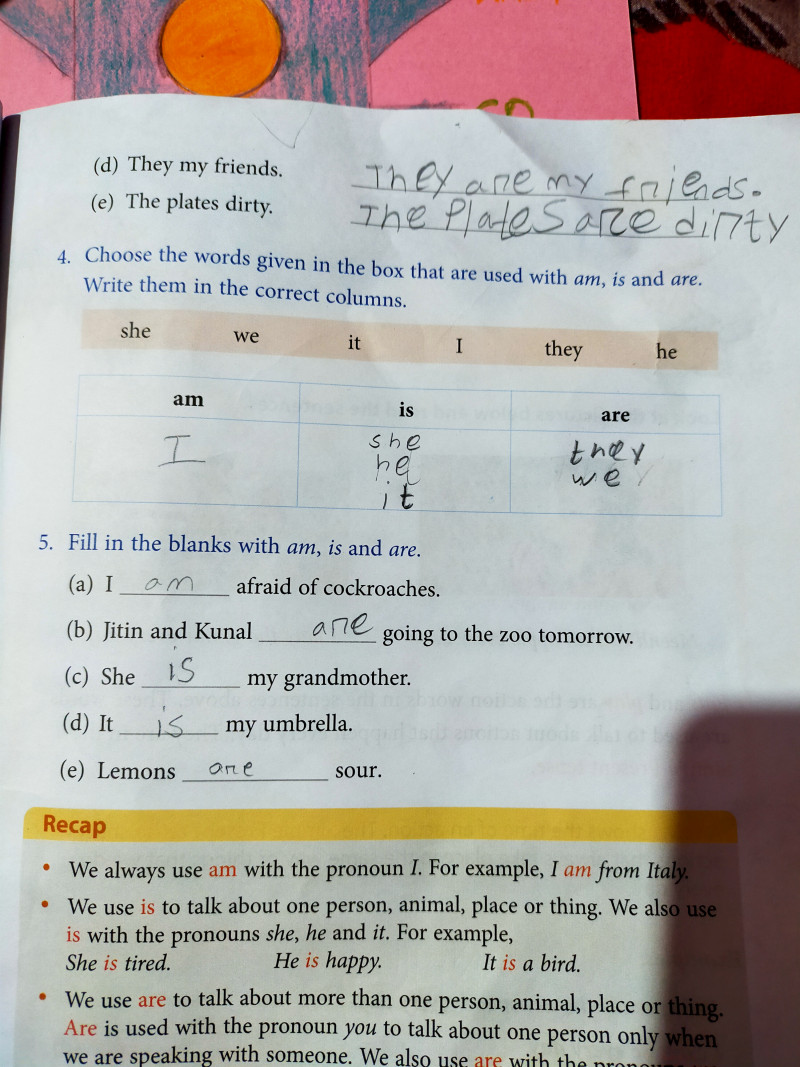 (d) They my friends. They are my friends.
(e) The plates dirty. The Plates are dirty
4. Choose the words given in the box that are used with am, is and are.
Write them in the correct columns.
she we it I they he
am is are
I she they
he we
it
5. Fill in the blanks with am, is and are.
(a) I am afraid of cockroaches.
(b) Jitin and Kunal are going to the zoo tomorrow.
(c) She is my grandmother.
(d) It is my umbrella.
(e) Lemons are sour.
Recap
• We always use am with the pronoun I. For example, I am from Italy.
• We use is to talk about one person, animal, place or thing. We also use
is with the pronouns she, he and it. For example,
She is tired. He is happy. It is a bird.
• We use are to talk about more than one person, animal, place or thing.
Are is used with the pronoun you to talk about one person only when
we are speaking with someone. We also use are with the